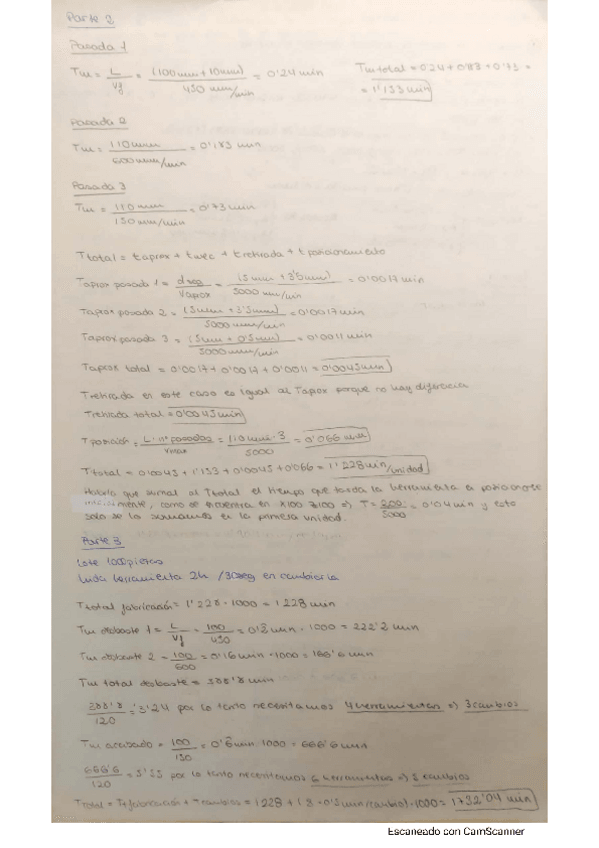 Parte 2
Pasada 1
Tm = L/Vf = (100mm+10mm)/450 mm/min = 0'24 min
Tm total = 0'24 + 0'183 + 0'73 =
= 1'153 min
Pasada 2
Tm = 110mm/600mm/min = 0'183 min
Pasada 3
Tm = 110 mm/150 mm/min = 0'73 min
Ttotal = t aprox + t mec + t retirada + t posicionamiento
Taprox pasada 1 = /Vaprox = (5mm + 3'5mm)/5000 mm/min = 0'0017 min
Taprox pasada 2 = (5mm + 3'5mm)/5000 mm/min = 0'0017 min
Taprox pasada 3 = (5mm + 0'5mm)/5000 mm/min = 0'0011 min
Taprox total = 0'0017 + 0'0017 + 0'0011 = 0'0045 min
Tretirada en este caso es igual al Taprox porque no hay diferencia
Tretirada total = 0'0045 min
Tposición = L · nº pasadas/Vmax = 110 mm · 3/5000 = 0'066 min
Ttotal = 0'0045 + 1'153 + 0'0045 + 0'066 = 1'228 min/unidad
Habría que sumar al Ttotal el tiempo que tarda la herramienta a posicionarse
inicialmente, como se encuentra en X100 Z100 => T = 200/5000 = 0'04 min y esto
solo se lo sumamos en la primera unidad.
Parte 3
Lote 1000 piezas
herramienta 2h / 30seg en cambiarla
Ttotal fabricación = 1'228 · 1000 = 1228 min
Tm desbaste 1 = L/Vf = 100/450 = 0'2 min · 1000 = 222'2 min
Tm desbaste 2 = 100/600 = 0'16 min · 1000 = 166'6 min
Tm total desbaste = 388'8 min
388'8/120 = 3'24 por lo tanto necesitamos 4 herramientas => 3 cambios
Tm acabado = 100/150 = 0'6 min · 1000 = 666'6 min
666'6/120 = 5'55 por lo tanto necesitamos 6 herramientas => 5 cambios
Ttotal = Tfabricación + Tcambios = 1228 + (8 · 0'5 min/cambio) · = 1732'04 min
Escaneado con CamScanner